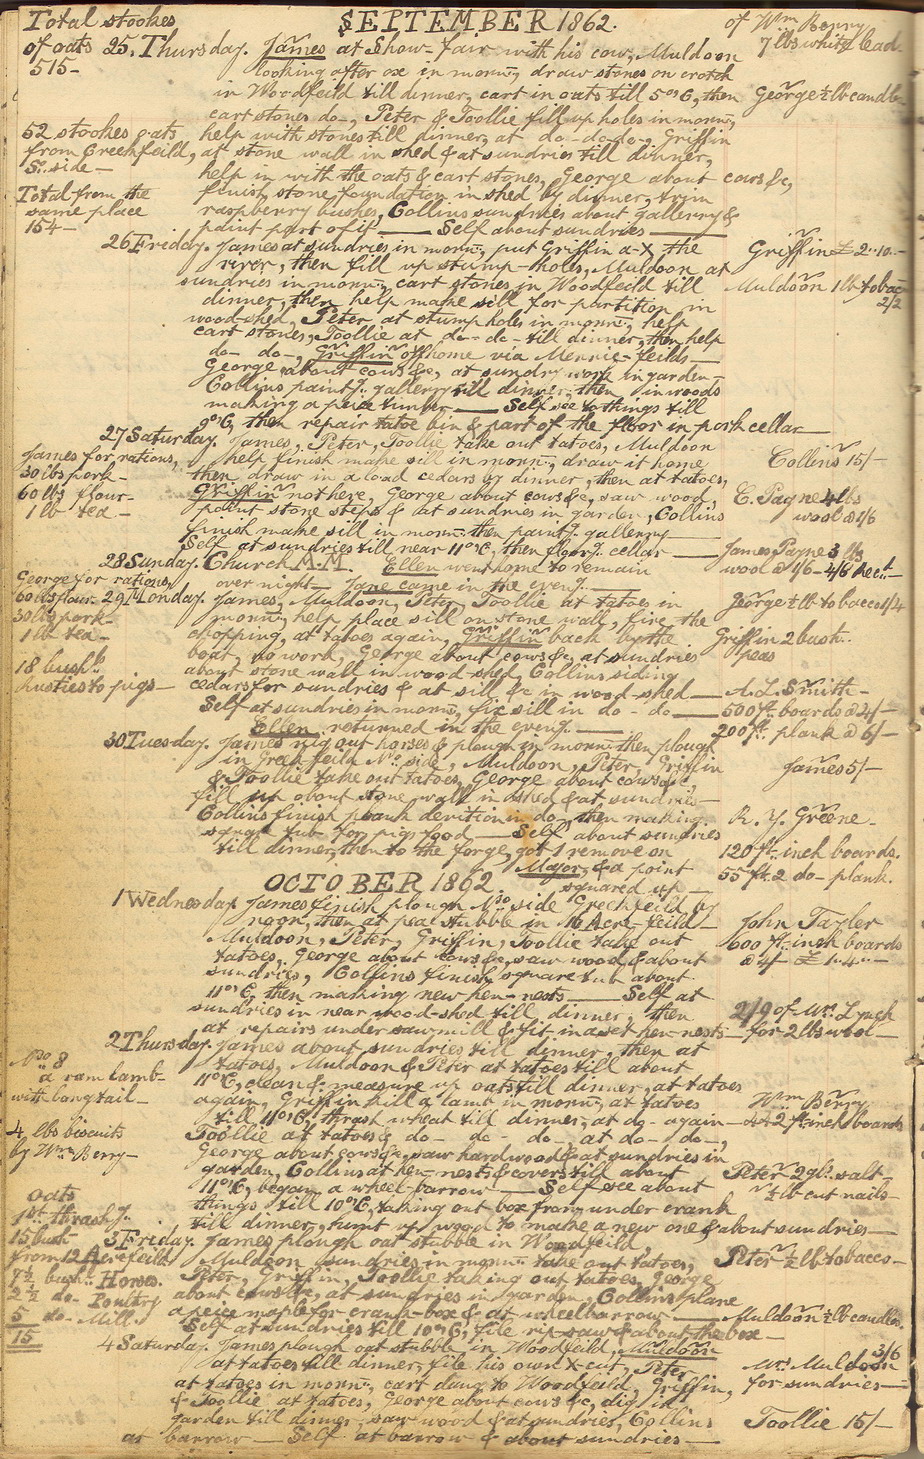 Total stookes
of oats
515-
SEPTEMBER 1862.
of Wm Berry
7 lbs white lead-
25. Thursday. James at Show-fair with his cow, Muldoon
looking after ox in mornng, draw stones on crotch
in Woodfeild till dinner, cart in oats till 5 O'C, then
George ½ lb candle-
cart stones do-, Peter & Toollie fill up holes in mornng,
52 stookes oats
from Greenfeild,
So. side-
help with stones till dinner, at do-do-do-, Griffin
at stone wall in shed & at sundries till dinner,
help in with the oats & cart stones, George about cows &c,
Total from the
same place
154-
finish stone foundation in shed by dinner, trim
raspberry bushes, Collins sundries about gallerry &
paint part of it — Self about sundries —
26 Friday. James at sundries in mornng, put Griffin a-X the
Griffin £ 2..10.-
river, then fill up stump-holes, Muldoon at
sundries in mornng, cart stones in Woodfeild till
Muldoon 1 lb tobac-
2/2
dinner, then help make sill for partition in
wood-shed, Peter at stump holes in mornng, help
cart stones, Toollie at do-do- till dinner, then help
do- do-, Griffin off home via Mennie-feilds-
George about cows &c, at sundry work in garden-
Collins paintg. gallerry till dinner, then in woods
making a peice timber — Self see to things till
9 O'C, then repair tatoe bin & part of the floor in pork cellar —
27 Saturday. James, Peter, Toollie take out tatoes, Muldoon
Collins 15/-
James for rations,
30 lbs pork-
60 lbs flour-
1 lb tea-
help finish make sill in mornng, draw it home
then draw in a load cedars by dinner, then at tatoes,
Griffin not here, George about cows &c, saw wood,
E. Payne 4 lbs
wool @ 1/6
paint stone steps & at sundries in garden, Collins
finish make sill in mornng then paintg. gallerry —
Self at sundries till near 11 O'C, then floorg. cellar —
James Payne 3 lbs
wool @ 1/6-4/6 Acct.-
28 Sunday. Church M.M. Ellen went home to remain
over night- Jane came in the eveng. —
George for rations,
60 lbs flour-
30 lbs pork-
1 lb tea-
29 Monday. James, Muldoon, Peter, Toollie at tatoes in
George ½ lb tobacco 1/4
mornng, help place sill on stone wall, fire the
chopping, at tatoes again, Griffin back by the
Griffin 2 bush..
peas
boat, no work, George about cows &c, at sundries
about stone wall in wood-shed, Collins siding
18 bushls.
Rusties to pigs-
cedars for sundries & at sill &c in wood-shed —
A. L. Smith-
500 ft. boards @ 4/-
200 ft. plank @ 6/-
Self at sundries in mornng, fix sill in do- do —
Ellen returned in the eveng. —
30 Tuesday. James rig out horses & plough in mornng then plough
in Greenfeild No. side, Muldoon, Peter, Griffin
James 5/-
& Toollie take out tatoes, George about cows &c,
fill up about stone wall in shed & at sundries-
Collins finish plank devition in do-, then making
R. Y. Greene-
square tub for pigs food — Self about sundries
till dinner, then to the forge, got 1 remove on
120 ft. inch boards.
Major, & a point
squared up —
55 ft. 2 do- plank.
OCTOBER 1862.
1 Wednesday. James finish plough No. side Greenfeild by
noon, then at pea stubble in 16 Acre-feild-
John Tayler
600 ft. inch boards
@ 4/- £ 1..4..-
Muldoon, Peter, Griffin, Toollie take out
tatoes, George about cows &c, saw wood & about
sundries, Collins finish square tub about
11 O'C, then making new hen-nests — Self at
sundries in near wood-shed till dinner, then
2/9 of Mr. Lynch
at repairs under sawmill & fit in a set hen-nests-
for 2 lbs wool-
2 Thursday. James about sundries till dinner, then at
No 8
a ram lamb-
with long tail-
tatoes, Muldoon & Peter at tatoes till about
11 O'C, clean & measure up oats till dinner, at tatoes
again, Griffin kill a lamb in mornng, at tatoes
Wm Berry
2 ft. inch boards
till 11 O'C, thrash wheat till dinner, at do- again-
4 lbs biscuits
by Wm Berry-
Toollie at tatoes & do- do- do-, at do- do-,
George about cows &c, saw hardwood & at sundries in
garden, Collins at hen-nests & covers till about
Peter 2 gls. salt-
11 O'C, began a wheel-barrow — Self see about
½ lb cut nails-
things till 10 O'C, taking out box from under crank
till dinner, hunt up wood to make a new one & about sundries-
oats
1st. thrashg.
15 bush-
from 12 Acrefeild
7½ bush.. Horses.
2½ do- Poultry
5 do- Mill.
15
3 Friday. James plough oat stubble in Woodfeild,
Muldoon sundries in mornng take out tatoes,
Peter ½ lb tobacco-
Peter, Griffin, Toollie taking out tatoes, George
about cows &c, at sundries in garden, Collins plane
a peice maple for crank-box & at wheelbarrow —
Muldoon ½ lb candles-
Self at sundries till 10 O'C, file rip-saw & about the box-
4 Saturday. James plough oat stubble in Woodfeild, Muldoon
3/6
Mr. Muldoon
for sundries-
at tatoes till dinner, file his own X-cut, Peter
at tatoes in mornng, cart dung to Woodfeild, Griffin,
& Toollie at tatoes, George about cows &c, dig in
garden till dinner, saw wood & at sundries, Collins
Toollie 15/-
at barrow — Self at barrow & about sundries —